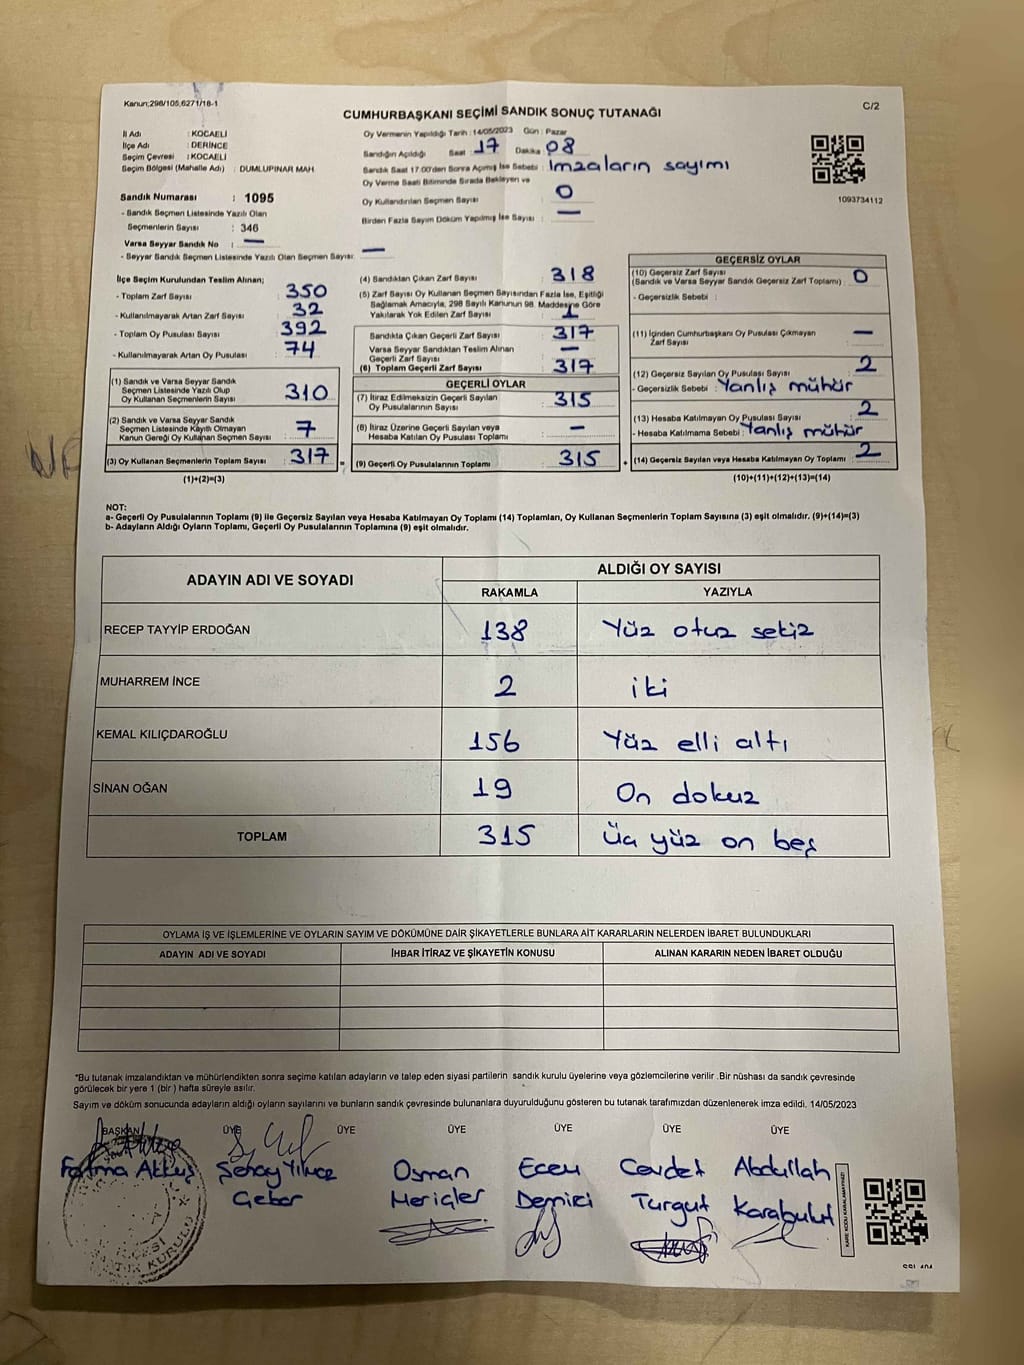 Kanun;298/105,6271/18-1
C/2
CUMHURBAŞKANI SEÇİMİ SANDIK SONUÇ TUTANAĞI
İl Adı : KOCAELİ
İlçe Adı : DERİNCE
Seçim Çevresi : KOCAELİ
Seçim Bölgesi (Mahalle Adı) : DUMLUPINAR MAH
Sandık Numarası : 1095
- Sandık Seçmen Listesinde Yazılı Olan
Seçmenlerin Sayısı : 346
Varsa Seyyar Sandık No : —
- Seyyar Sandık Seçmen Listesinde Yazılı Olan Seçmen Sayısı: —
Oy Vermenin Yapıldığı Tarih : 14/05/2023 Gün : Pazar
Sandığın Açıldığı Saat 17 Dakika 08
Sandık Saat 17.00'den Sonra Açılmış İse Sebebi : İmzaların sayımı
Oy Verme Saati Bitiminde Sırada Bekleyen ve
Oy Kullandırılan Seçmen Sayısı : 0
Birden Fazla Sayım Döküm Yapılmış İse Sayısı : —
1093734112
İlçe Seçim Kurulundan Teslim Alınan;
- Toplam Zarf Sayısı : 350
- Kullanılmayarak Artan Zarf Sayısı : 32
- Toplam Oy Pusulası Sayısı : 392
- Kullanılmayarak Artan Oy Pusulası : 74
(1) Sandık ve Varsa Seyyar Sandık
Seçmen Listesinde Yazılı Olup
Oy Kullanan Seçmenlerin Sayısı : 310
(2) Sandık ve Varsa Seyyar Sandık
Seçmen Listesinde Kayıtlı Olmayan
Kanun Gereği Oy Kullanan Seçmen Sayısı : 7
(3) Oy Kullanan Seçmenlerin Toplam Sayısı : 317
(1)+(2)=(3)
(4) Sandıktan Çıkan Zarf Sayısı : 318
(5) Zarf Sayısı Oy Kullanan Seçmen Sayısından Fazla İse, Eşitliği
Sağlamak Amacıyla, 298 Sayılı Kanunun 98. Maddesine Göre
Yakılarak Yok Edilen Zarf Sayısı : 1
Sandıkta Çıkan Geçerli Zarf Sayısı : 317
Varsa Seyyar Sandıktan Teslim Alınan
Geçerli Zarf Sayısı : —
(6) Toplam Geçerli Zarf Sayısı : 317
GEÇERLİ OYLAR
(7) İtiraz Edilmeksizin Geçerli Sayılan
Oy Pusulalarının Sayısı : 315
(8) İtiraz Üzerine Geçerli Sayılan veya
Hesaba Katılan Oy Pusulası Toplamı : —
= (9) Geçerli Oy Pusulalarının Toplamı : 315 +
GEÇERSİZ OYLAR
(10) Geçersiz Zarf Sayısı
(Sandık ve Varsa Seyyar Sandık Geçersiz Zarf Toplamı) : 0
- Geçersizlik Sebebi :
(11) İçinden Cumhurbaşkanı Oy Pusulası Çıkmayan
Zarf Sayısı : —
(12) Geçersiz Sayılan Oy Pusulası Sayısı : 2
- Geçersizlik Sebebi : Yanlış mühür
(13) Hesaba Katılmayan Oy Pusulası Sayısı : 2
- Hesaba Katılmama Sebebi : Yanlış mühür
(14) Geçersiz Sayılan veya Hesaba Katılmayan Oy Toplamı : 2
(10)+(11)+(12)+(13)=(14)
NOT:
a- Geçerli Oy Pusulalarının Toplamı (9) ile Geçersiz Sayılan veya Hesaba Katılmayan Oy Toplamı (14) Toplamları, Oy Kullanan Seçmenlerin Toplam Sayısına (3) eşit olmalıdır. (9)+(14)=(3)
b- Adayların Aldığı Oyların Toplamı, Geçerli Oy Pusulalarının Toplamına (9) eşit olmalıdır.
ADAYIN ADI VE SOYADI ALDIĞI OY SAYISI
RAKAMLA YAZIYLA
RECEP TAYYİP ERDOĞAN 138 Yüz otuz sekiz
MUHARREM İNCE 2 iki
KEMAL KILIÇDAROĞLU 156 Yüz elli altı
SİNAN OĞAN 19 On dokuz
TOPLAM 315 Üç yüz on beş
OYLAMA İŞ VE İŞLEMLERİNE VE OYLARIN SAYIM VE DÖKÜMÜNE DAİR ŞİKAYETLERLE BUNLARA AİT KARARLARIN NELERDEN İBARET BULUNDUKLARI
ADAYIN ADI VE SOYADI İHBAR İTİRAZ VE ŞİKAYETİN KONUSU ALINAN KARARIN NEDEN İBARET OLDUĞU
*Bu tutanak imzalandıktan ve mühürlendikten sonra seçime katılan adayların ve talep eden siyasi partilerin sandık kurulu üyelerine veya gözlemcilerine verilir .Bir nüshası da sandık çevresinde
görülecek bir yere 1 (bir ) hafta süreyle asılır.
Sayım ve döküm sonucunda adayların aldığı oyların sayılarını ve bunların sandık çevresinde bulunanlara duyurulduğunu gösteren bu tutanak tarafımızdan düzenlenerek imza edildi. 14/05/2023
BAŞKAN ÜYE ÜYE ÜYE ÜYE ÜYE ÜYE
Fatma Akkuş Osman Ecem Cevdet Abdullah
Demirci Turgut Karabulut
KARE KODU KARALAMAYINIZ!
KURULU